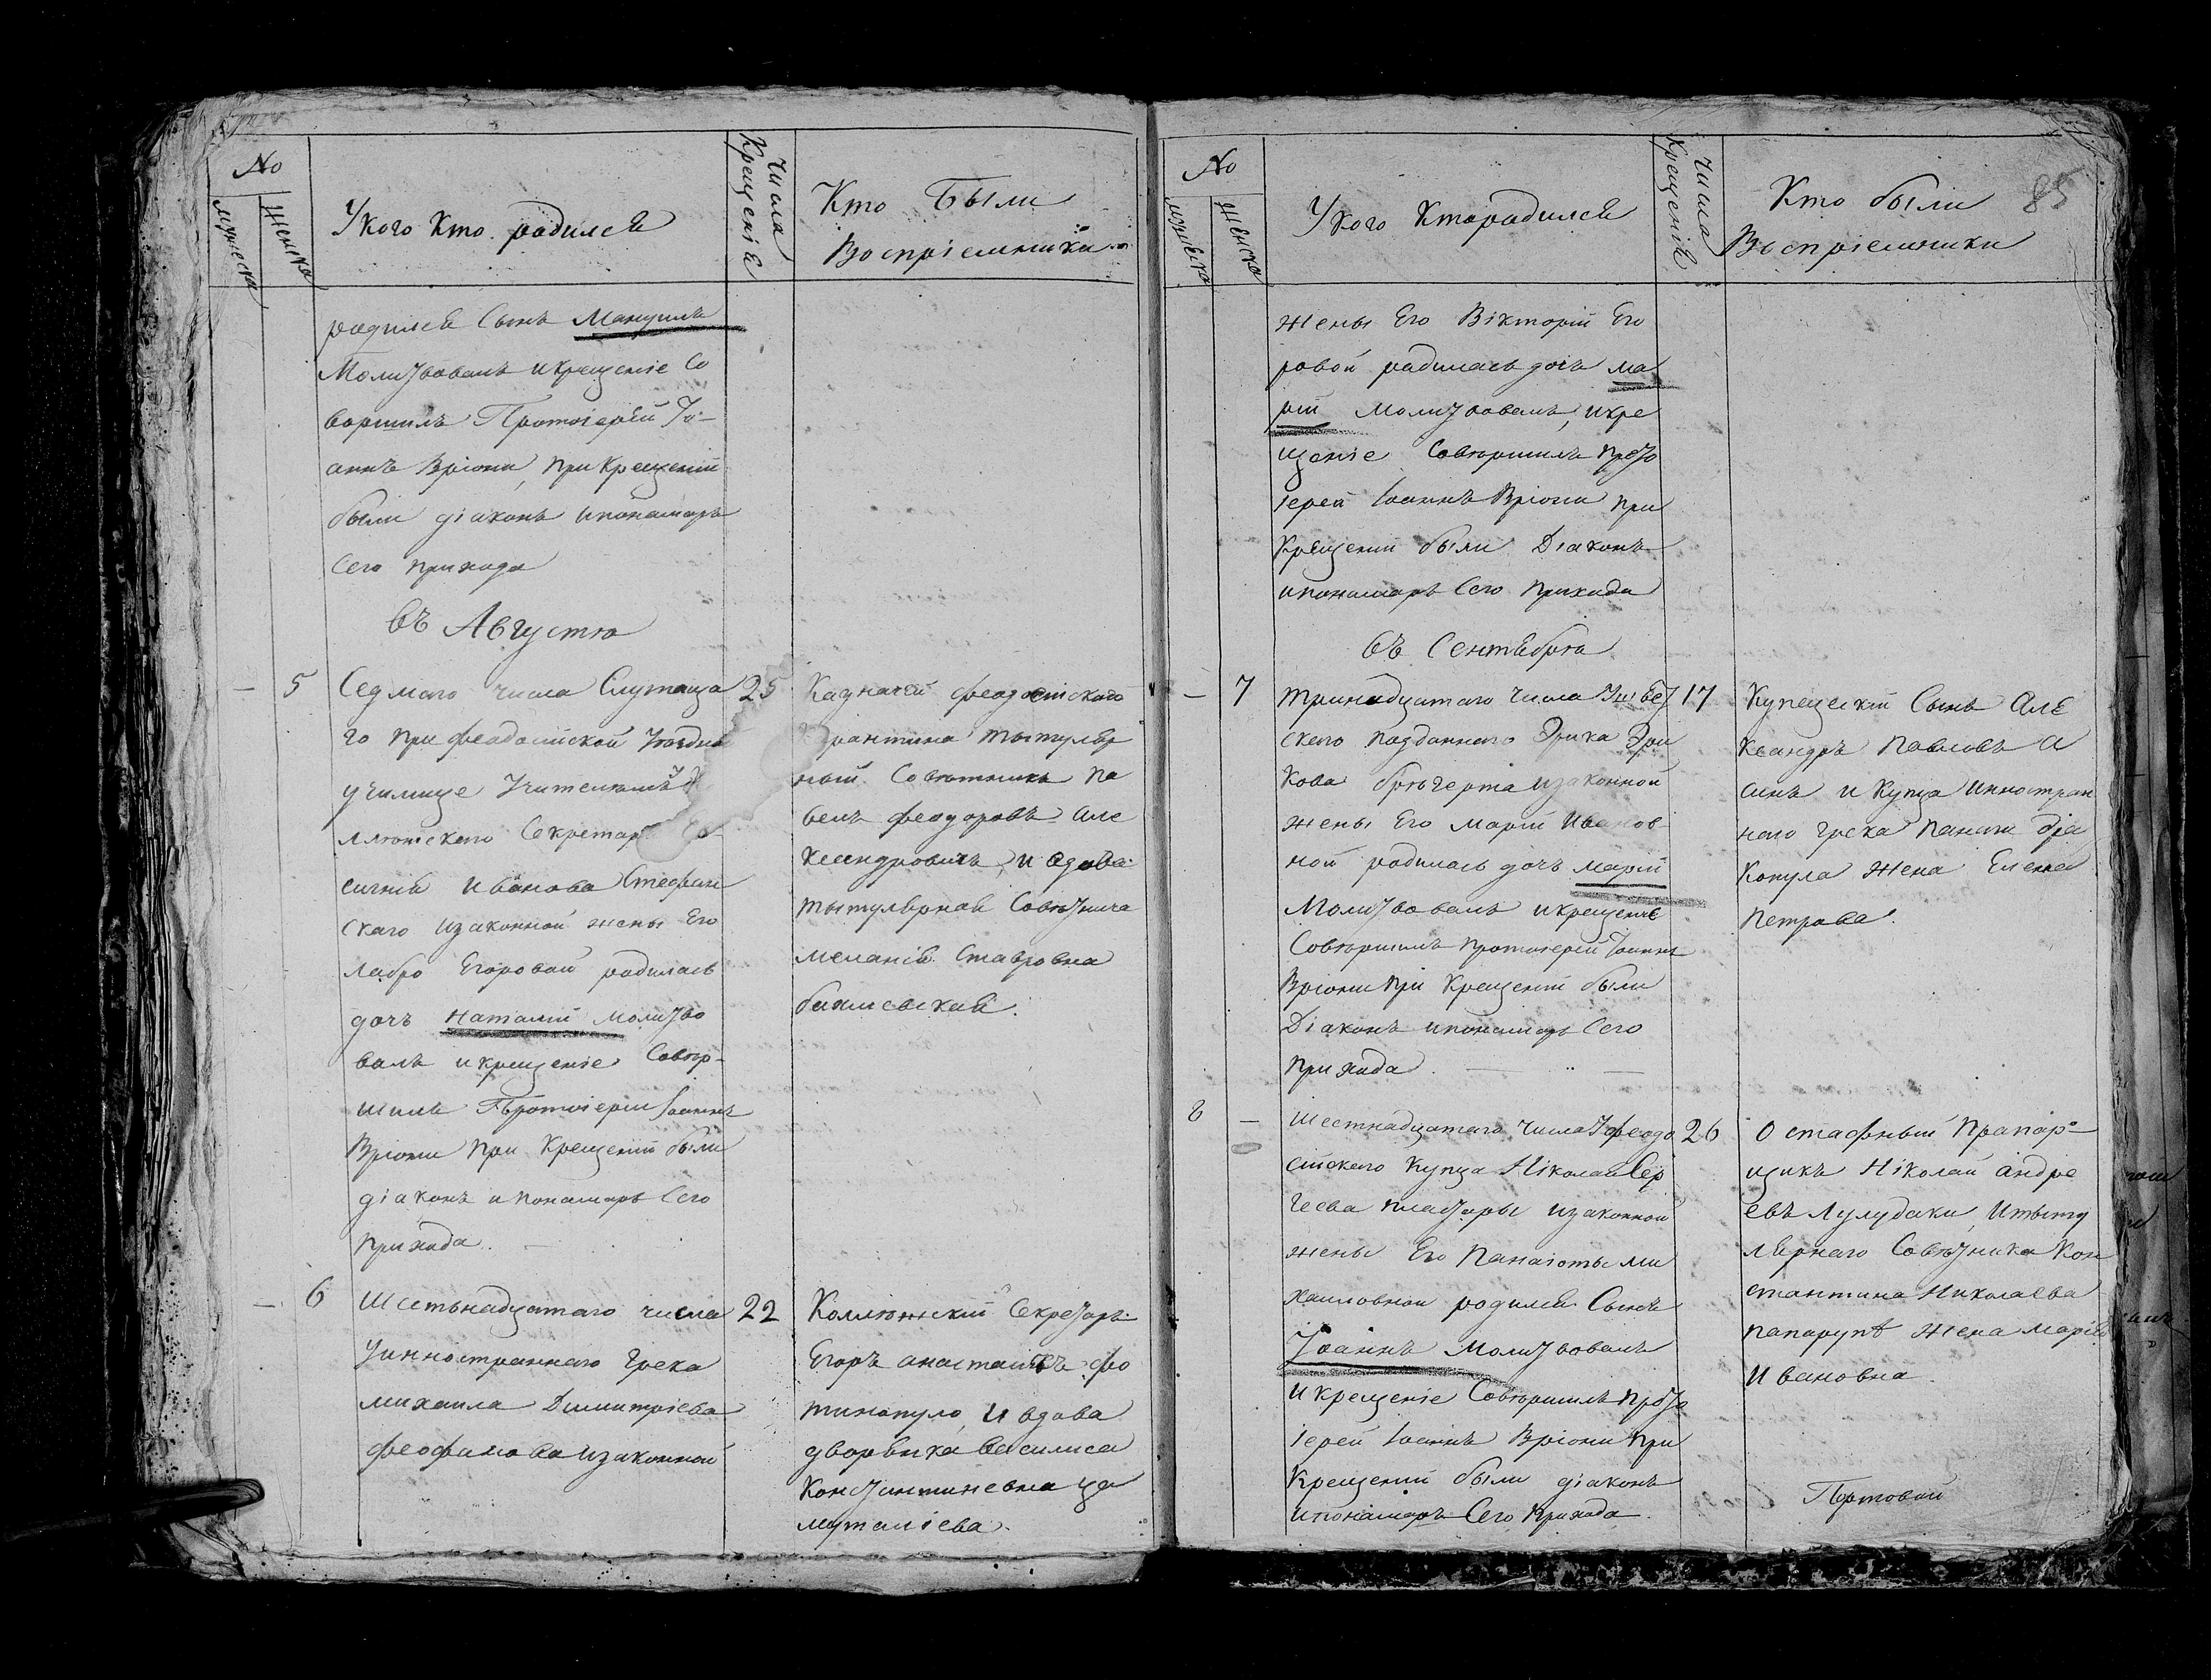 No
мужеска
женска
У кого кто родился
Числа
Крещенія
Кто Были
Воспріемники
родился Сынъ Мануилъ
Молитвовалъ и крещеніе Со
вершилъ Протоіерей Іо-
аннъ Вріони, при Крещеніи
были діаконъ и пономарь
Сего прихода
въ Августѣ
— 5 Седмаго числа Служаща 25
го при феодосійской уездно
училище Учителемъ
ллежскаго Секретар
Иванова Стефан
скаго и законной жены Его
Лабро Егоровой родилась
дочь Наталіи молитво
валъ и крещеніе Совер-
шилъ Протоіереи Іоаннъ
Вріони при Крещеніи были
діаконъ и пономарь Сего
прихода.
Казначей феодосійского
рантина тытуляр
ный Советникъ Па
велъ феодоровъ Але
ксандровичъ, и вдова
тытулярнаѣ Советнича
меланія Ставровна
— 6 Шестьнадцатаго числа 22
у инностраннаго Грека
михаила Димитріева
феофанова и законной
Коллежскій Секретарь
Егоръ анастасьевъ фо
тинопуло, и вдова
дворянка василиса
Константиневна
No
мужеска
женска
У кого кто родился
Числа
Крещенія
Кто были
Воспріемники
85
жены Его Вікторіи Его
ровой родилась дочь ма
ріи молитвовалъ, и кре
щеніе Совершилъ прото
іерей Іоаннъ Вріони при
Крещеніи были Діаконъ
и пономарь Сего прихода
въ Сентября
— 7 тринадцатаго числа У швет 17
скаго подданнаго Эрика Эри
кова и законной
жены Его маріи Иванов
ной родилась дочь маріи
Молитвовалъ и крещеніе
Совершилъ протоіерей Іоаннъ
Вріони при Крещеніи были
Діаконъ и пономарь Сего
прихода.
Купецскій Сынъ Але
ксандръ Павловъ А
синъ и купца инностран
наго грека
копула жена Елена
Петрова.
8 — шестнадцатаго числа У феодо 26
сійского купца Ніколая Сер
геева и законной
жены Его Панаіоты ми
хаиловной родился Сынъ
Іоаннъ молитвовалъ
и крещеніе Совершилъ прото
іерей Іоаннъ Вріони при
Крещеніи были діаконъ
и пономарь Сего прихода.
Отставный Прапор-
щикъ Ніколай андре
евъ Лулудаки, и тыту
лярнаго Советника Кон
стантина Николаева
папаруп жена марія
Ивановна.
Портовой